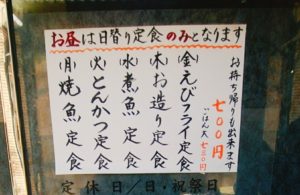 お昼は日替り定食のみとなります
お持ち帰りも出来ます
七〇〇円
㈮えびフライ定食
㈭お造り定食
㈬煮魚定食
㈫とんかつ定食
㈪焼魚定食
定休日/日・祝祭日